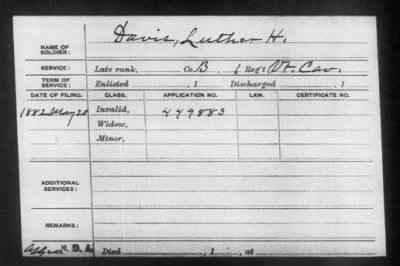 NAME OF SOLDIER: Davis, Luther H.
SERVICE: Late rank, Co. B, 1 Reg't Vt. Cav.
TERM OF SERVICE: Enlisted , 1 Discharged , 1
DATE OF FILING. CLASS. APPLICATION NO. LAW. CERTIFICATE NO.
1882 May 20 Invalid, 449883
Widow,
Minor,
ADDITIONAL SERVICES:
REMARKS:
Died , 1 , at